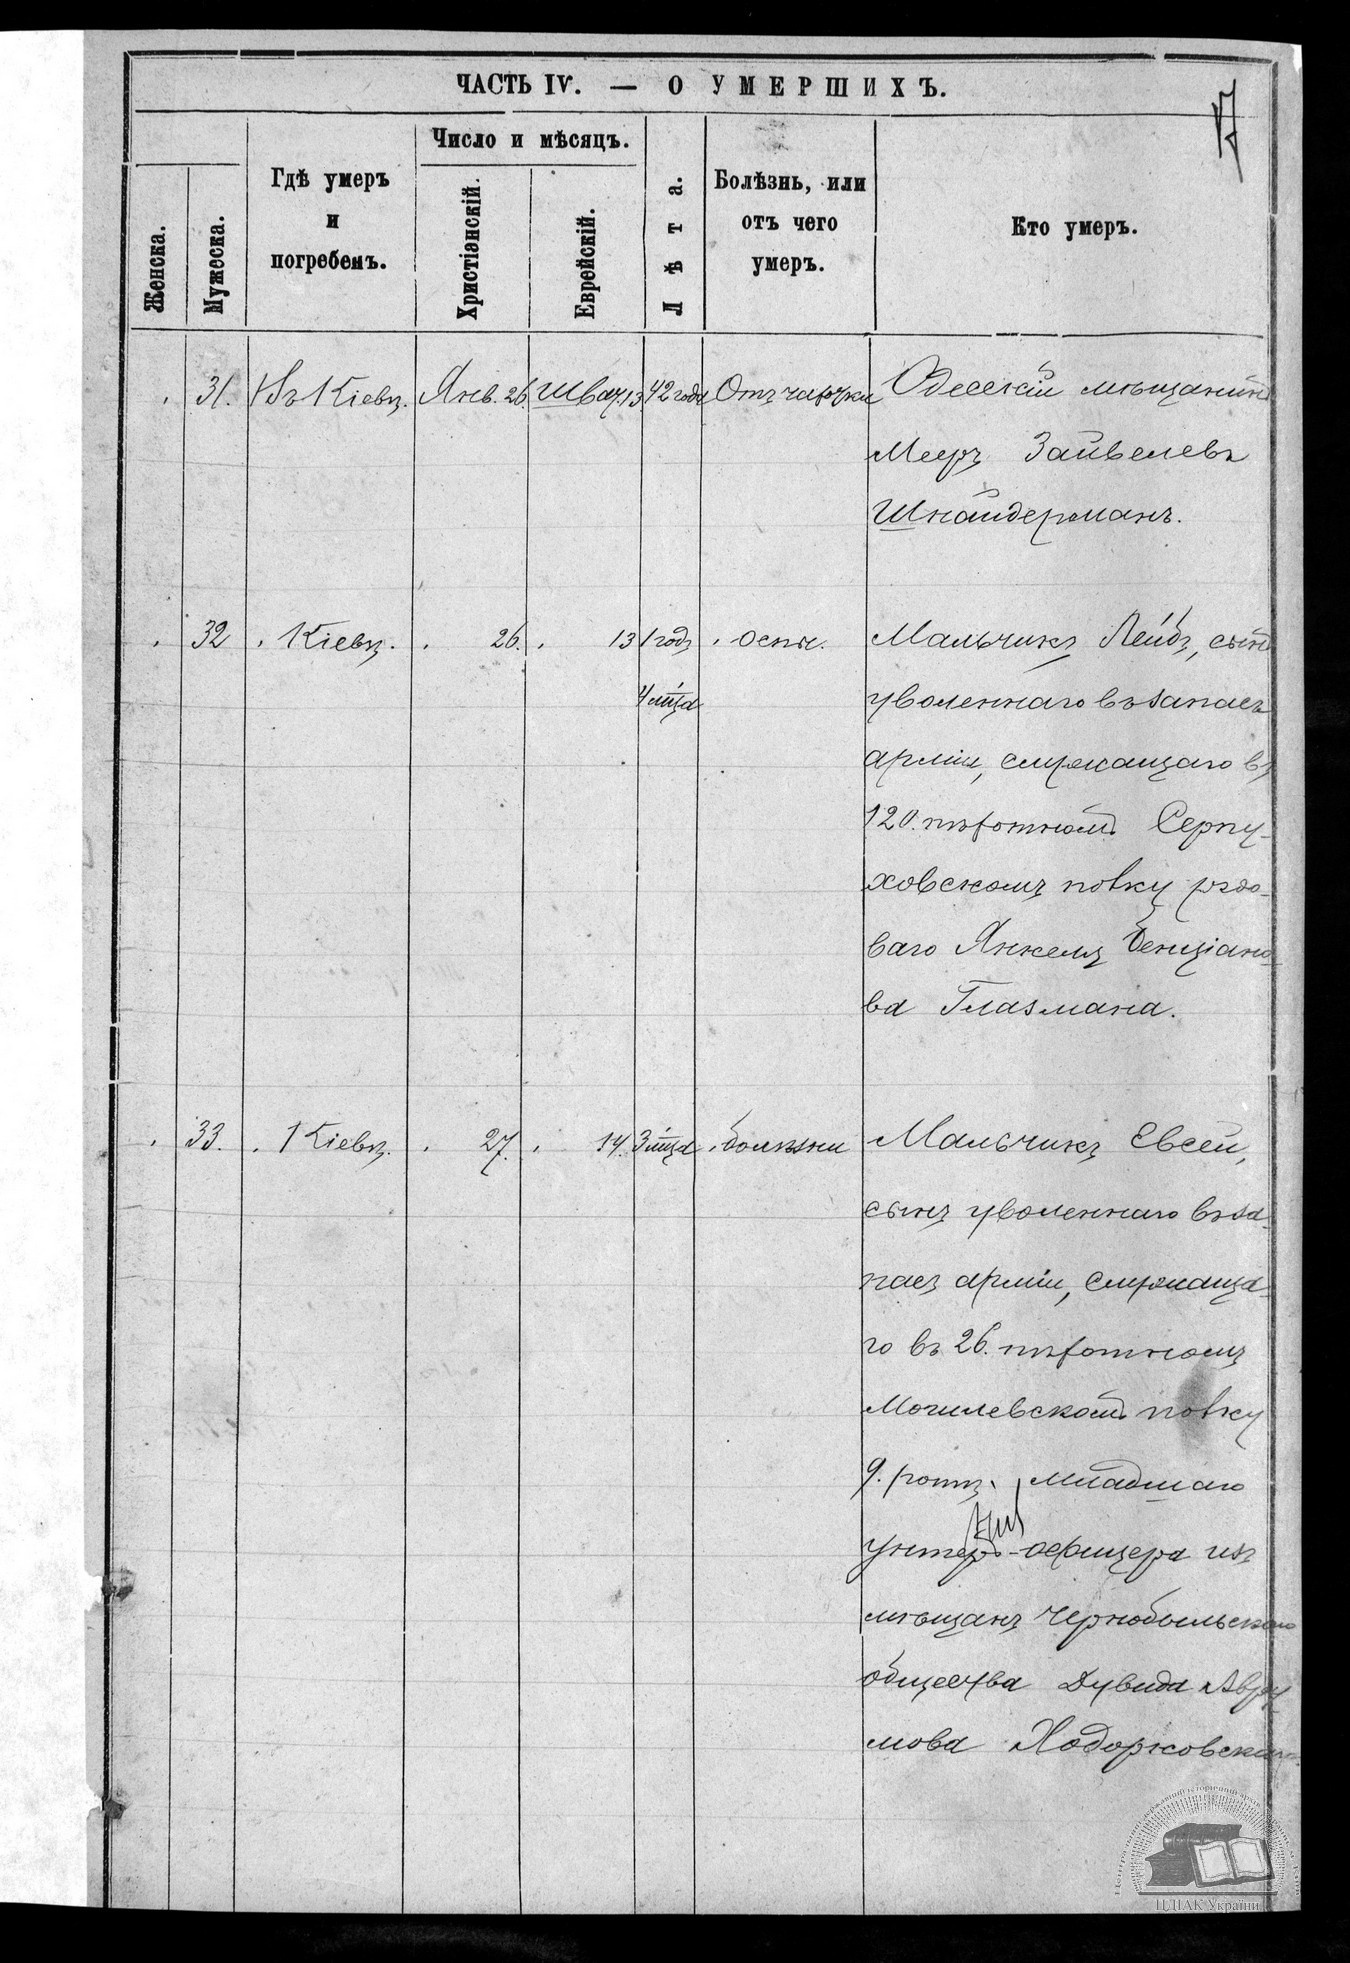 ЧАСТЬ IV. — О УМЕРШИХЪ.
17
Женска.
Мужеска.
Гдѣ умеръ
и
погребенъ.
Число и мѣсяцъ.
Христіанскій.
Еврейскій.
Лѣта.
Болѣзнь, или
отъ чего
умеръ.
Кто умеръ.
31. Въ Кіевѣ. Янв. 26. Шват. 13 42 года Отъ чахотки Одесскій мѣщанинъ
Мееръ Зайвелевъ
Шнайдерманъ.
32 Кіевѣ. 26. 13 1 годъ оспы. Мальчикъ Лейбъ, сынъ
4 мѣца уволеннаго въ запасъ
арміи, служащаго въ
120. пѣхотномъ Серпу-
ховскомъ полку рядо-
ваго Янкеля Бенціано-
ва Глазмана.
33. Кіевѣ. 27. 14. 3 мѣца болѣзни Мальчикъ Евсей,
сынъ уволеннаго въ за-
пасъ арміи, служаща-
го въ 26. пѣхотномъ
Могилевскомъ полку
9. ротѣ, младшаго
унтеръ-офицера изъ
мѣщанъ Чернобыльскаго
общества Дувида Авру
мова Ходорковскаго
ЦДІАК України